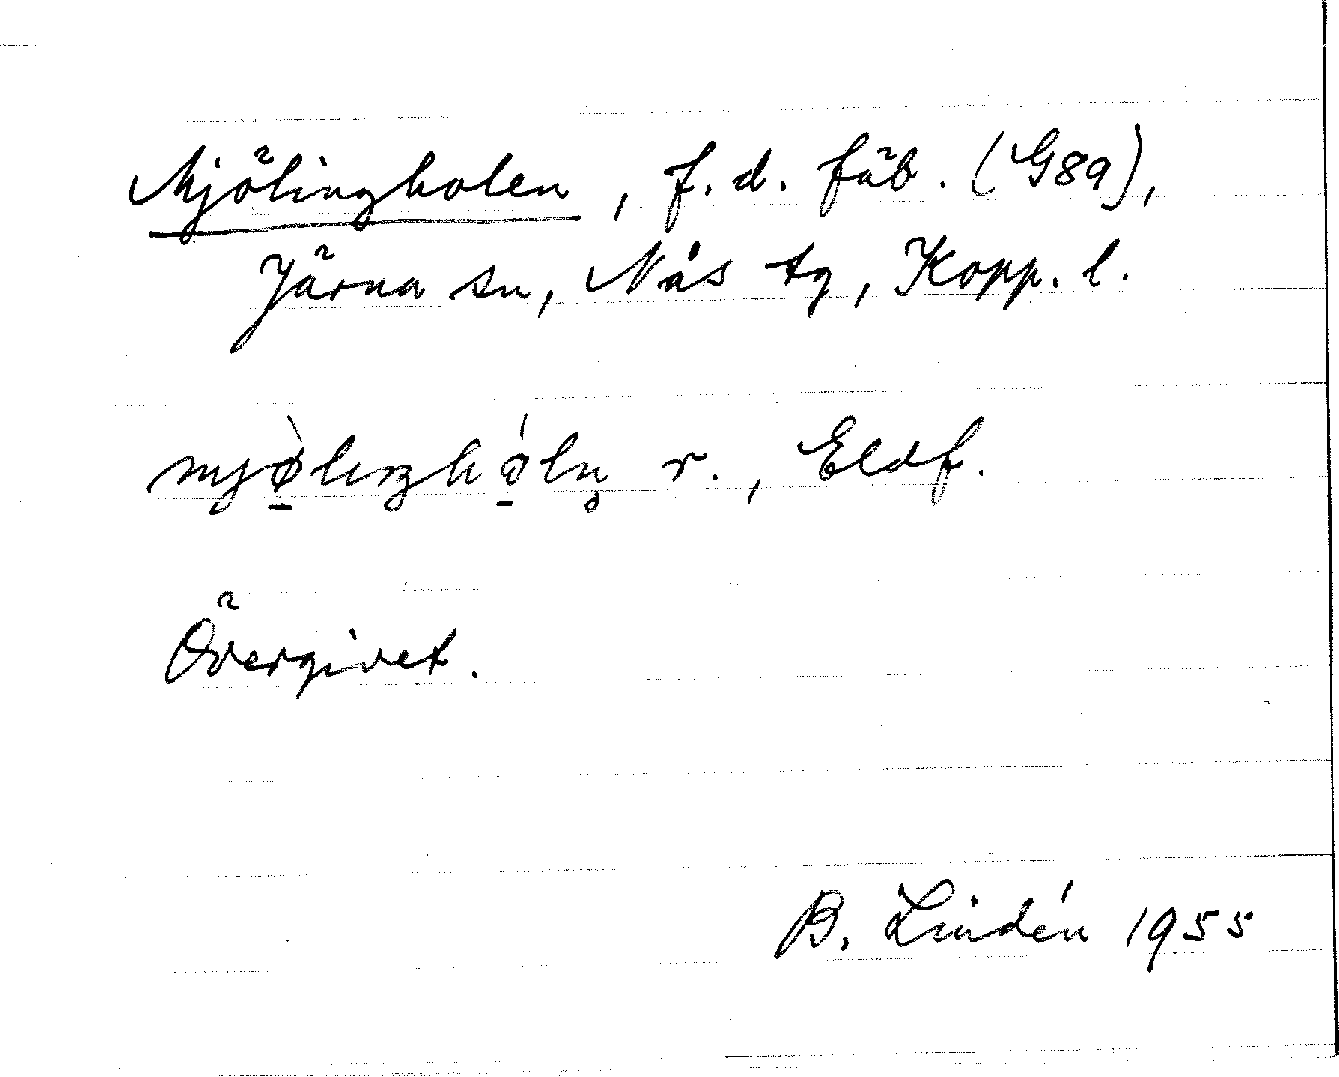 Mjölingholen, f.d. fäb. (G89),
Järna sn, Nås tg, Kopp. l.
r., Eldf.
Övergivet.
B. Lindén 1955